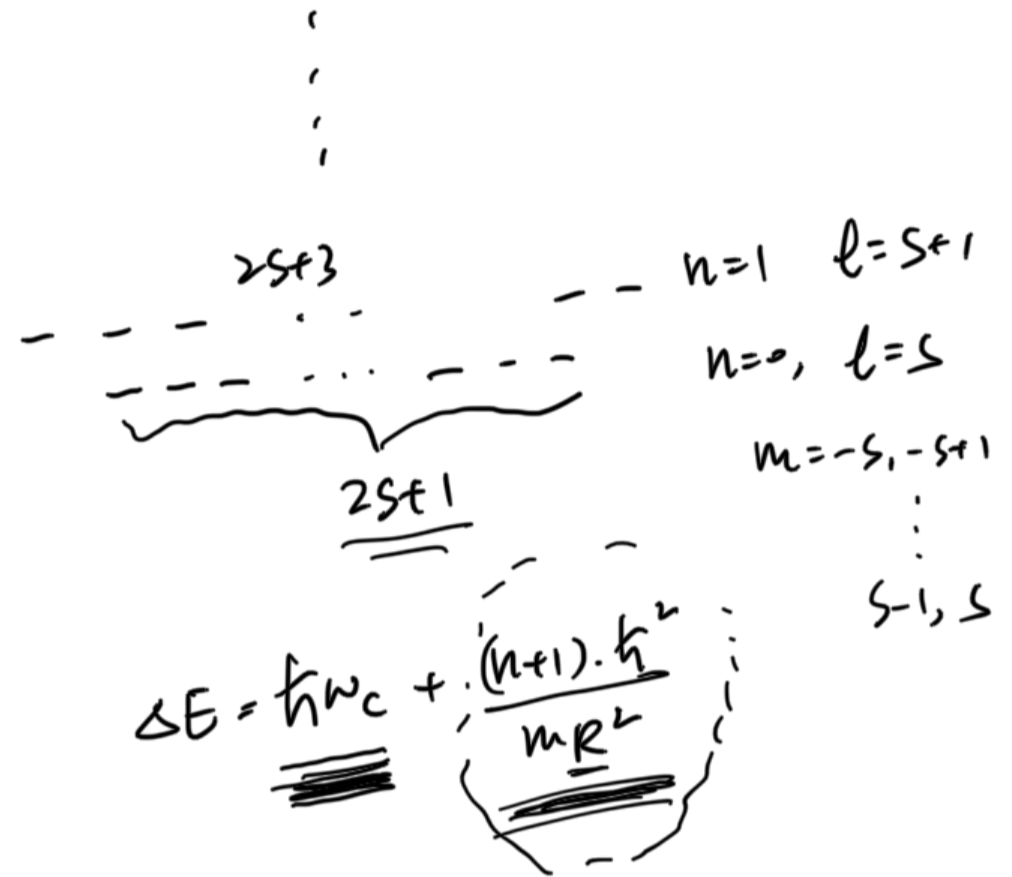 2s+3
n=1 l=s+1
n=0, l=s
m=-s,-s+1
⋮
s-1, s
2s+1
ΔE = ħω_c + (n+1)·ħ² / mR²